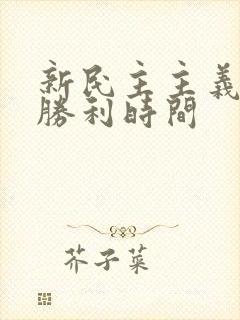 新民主主義
勝利時間
芥子菜